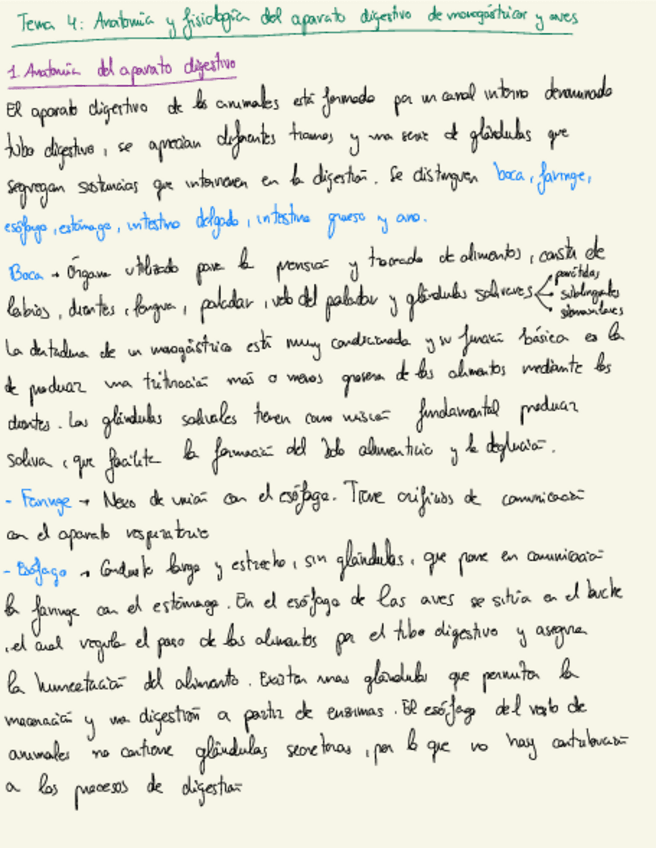 Tema 4: Anatomía y fisiología del aparato digestivo de monogástricos y aves
1. Anatomía del aparato digestivo
El aparato digestivo de los animales está formado por un canal interno denominado
tubo digestivo, se aprecian diferentes tramos y una serie de glándulas que
segregan sustancias que intervienen en la digestión. Se distinguen boca, faringe,
esófago, estómago, intestino delgado, intestino grueso y ano.
Boca → Órgano utilizado para la prensión y troceado de alimentos, consta de
labios, dientes, lengua, paladar, velo del paladar y glándulas salivares
parótidas
sublinguales
submaxilares
La dentadura de un monogástrico está muy condicionada y su función básica es la
de producir una trituración más o menos grosera de los alimentos mediante los
dientes. Las glándulas salivales tienen como misión fundamental producir
saliva, que facilite la formación del bolo alimenticio y la deglución.
- Faringe → Nexo de unión con el esófago. Tiene orificios de comunicación
con el aparato respiratorio
- Esófago → Conducto largo y estrecho, sin glándulas, que pone en comunicación
la faringe con el estómago. En el esófago de las aves se sitúa en el buche
, el cual regula el paso de los alimentos por el tubo digestivo y asegura
la humectación del alimento. Existen unas glándulas que permiten la
maceración y una digestión a partir de enzimas. El esófago del resto de
animales no contiene glándulas secretoras, por lo que no hay contribución
a los procesos de digestión